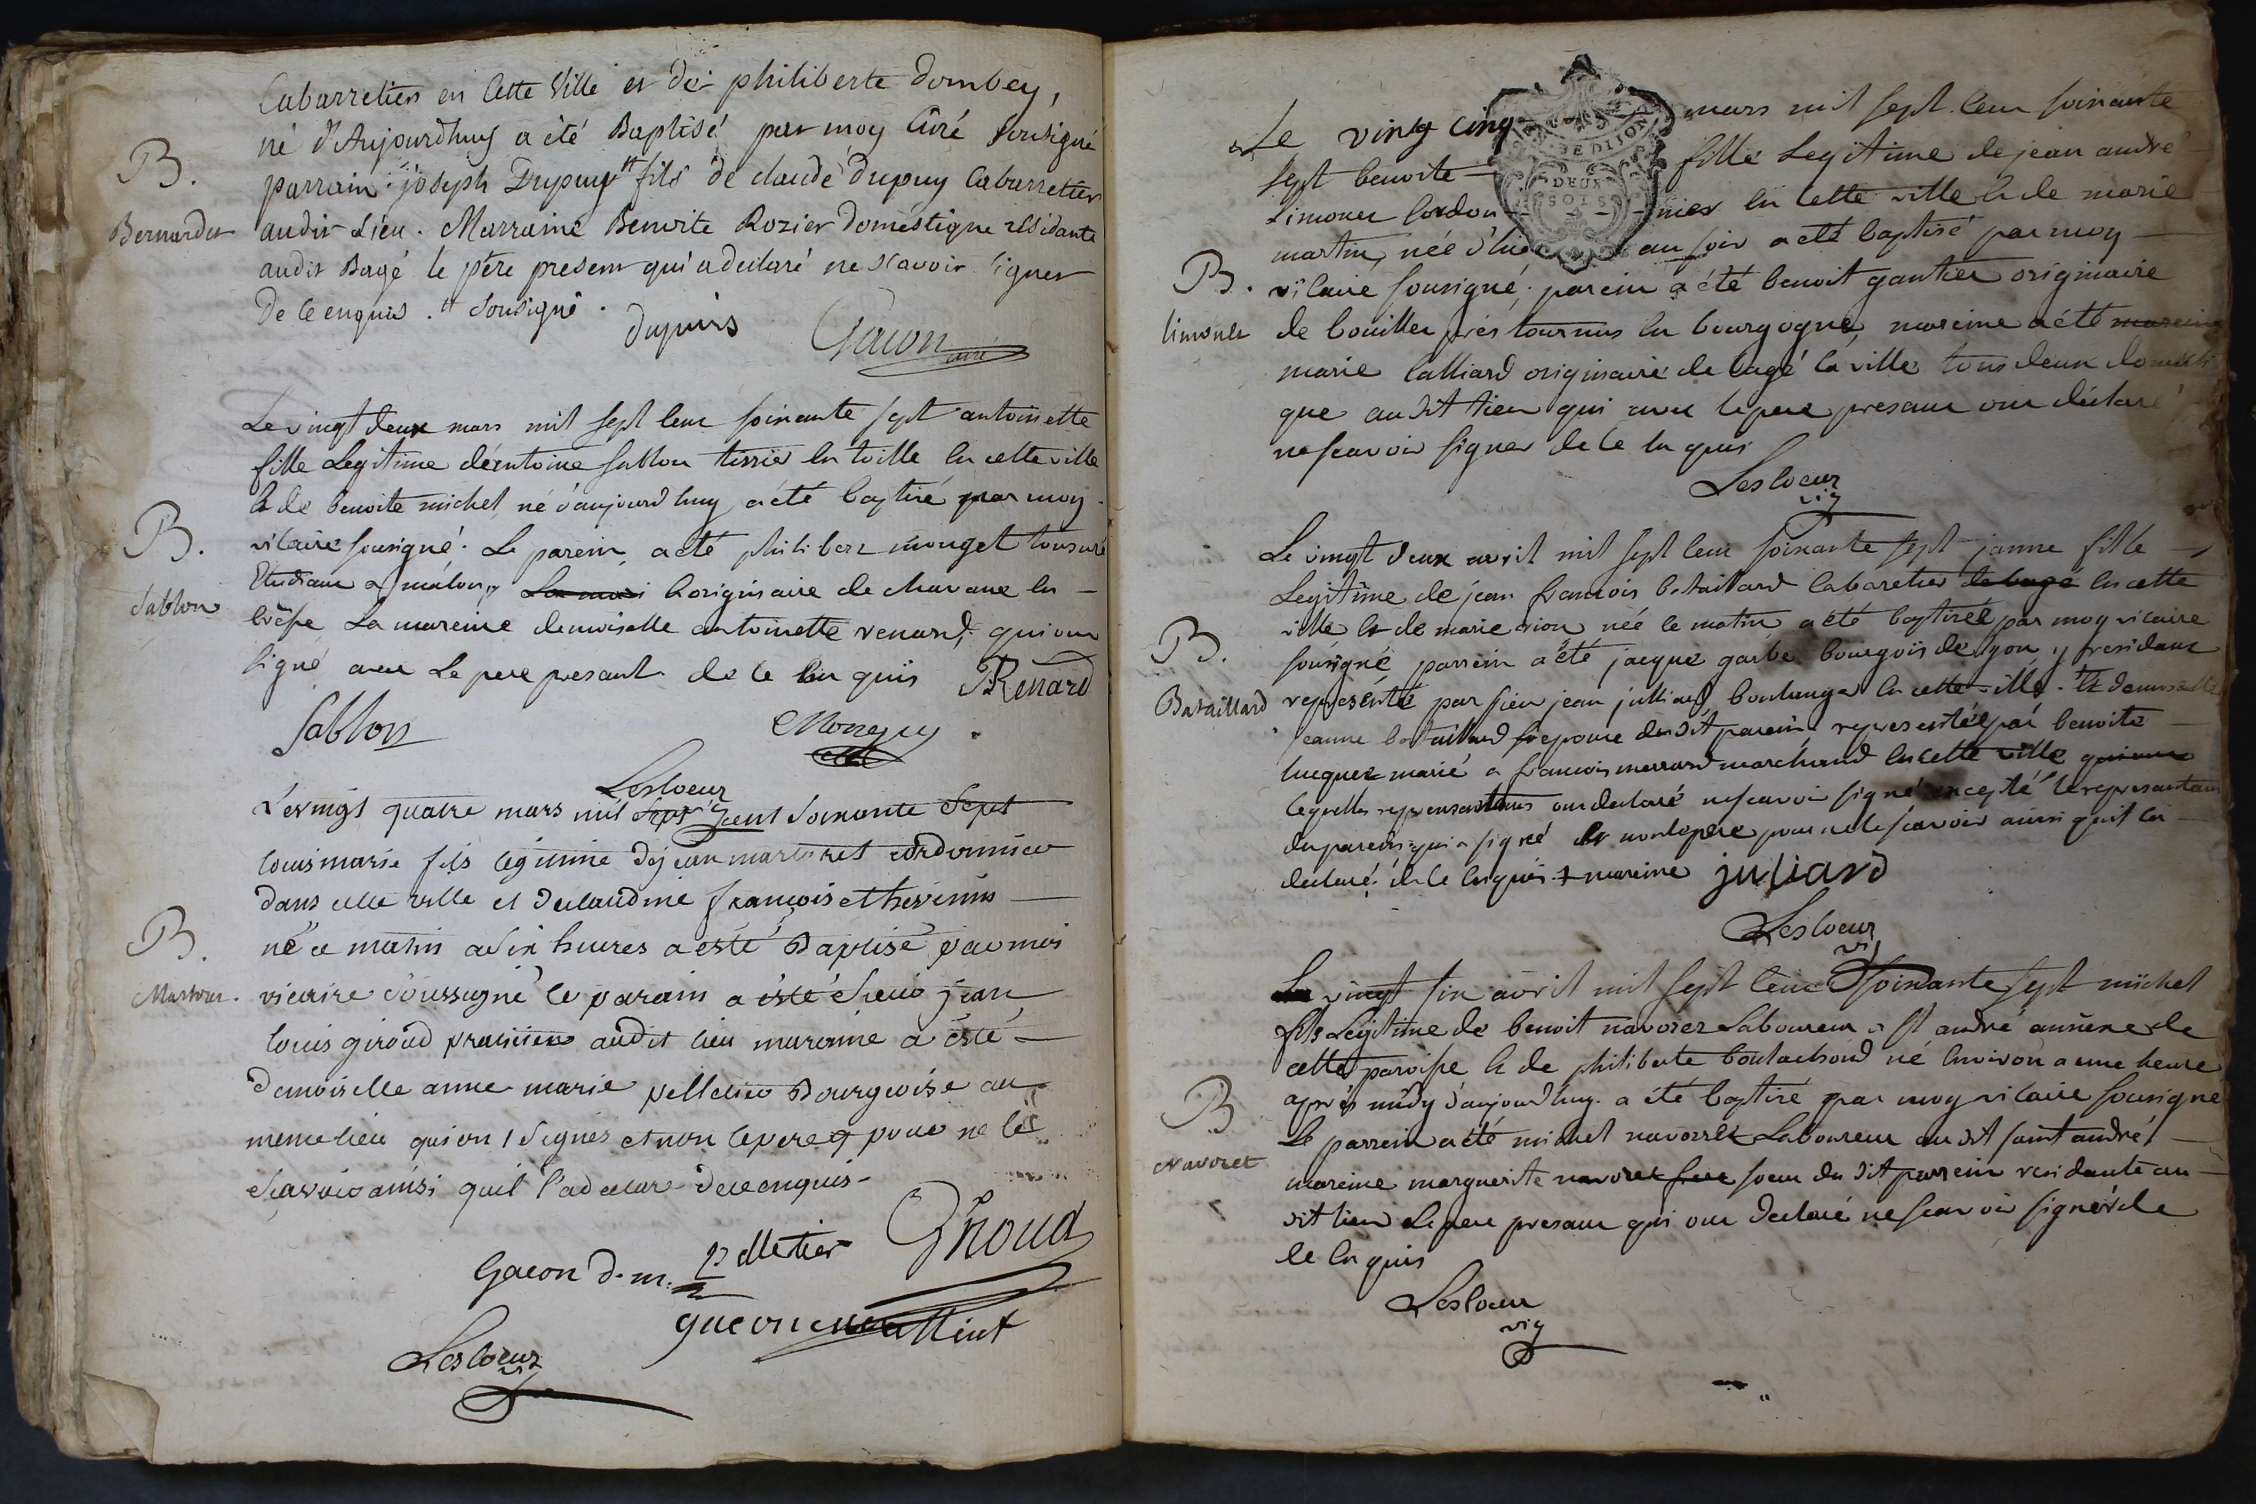 Cabarretiers en Cette Ville et de philiberte Dombey,
né d'Aujourdhuy a été Baptisé par moy Curé Sousigné
B.
parrain joseph Dupuy " fils de claude Dupuy Cabarretier
Bernardet
audit Lieu. Marraine Benoite Rozier Domestique residante
audit Bagé le père present qui a declaré ne scavoir signer
De ce enquis. " Sousigné.
dupuis
Gacon curé
Le vingt deux mars mil sept cent soixante sept antoinette
fille Legitime d'entoine sablon tissier en toille en cette ville
& de benoite michel né d'aujourd huy a été baptisé par moy
B.
vicaire sousigné. Le parein a été philibert mouget tonsuré
Sablon
Etudiant a mâcon originaire de chavane en
brêsse La mareine demoiselle antoinette renard, qui ont
signé avec Le pere present de ce en quis
Renard
Sablon
Lesloeur
Le vingt quatre mars mil sept cent soixante Sept
louis marie fils legitime de jean martoret cordonnier
dans cette ville et de claudine françois ethevenins
B.
né ce matin a six heures a esté Baptisé par moi
Martoret.
vicaire soussigné le parain a esté Sieur jean
louis giroud praticien audit lieu maraine a esté
demoiselle anne marie pelletier Bourgeoise au
meme lieu qui ont Signés et non le pere pour ne le
scavoir ainsi quil l'a declaré de ce enquis
Gacon d. m.
pelletier
Giroud
Lesloeur
Le vingt cinq mars mil sept cent soixante
DE DIJON
DEUX SOLS
sept benoite fille Legitime de jean andré
Limonet cordonnier en cette ville & de marie
martin, née d'hier au soir a été baptisé par moy
B.
vicaire sousigné; parein a été benoit gautier originaire
limonet
de bouiller près tournus en bourgogne, mareine a été mareine
marie Calliard originaire de bagé la ville tous deux domesti
que au dit lieu qui avec le pere presant ont déclaré
ne scavoir signer de ce en quis
Lesloeur
vic
Le vingt deux avril mil sept cent soixante sept janne fille
Legitime de jean francois bataillard cabaretier de bagé en cette
ville & de marie née le matin a été baptisée par moy vicaire
B.
sousigné parrein a été jacque garbé bourgois de lyon y residant
Bataillard
représenté par sieur jean julliard boulanger en cette ville. & demoiselle
jeanne bataillard epouse du dit parein representée par benoite
lucquet marié a francois marchand en cette ville
lequelles representans ont declaré ne scavoir signé excepté le representant
du parein qui a signé & non le pere pour ne le scavoir ainsi quil la
declaré. de ce enquis. + mareine
juliard
Lesloeur
vic
vingt six avril mil sept cent soixante sept michel
fils Legitime de benoit navoret Laboureur a st andré annexe de
cette paroisse & de philiberte né environ a une heure
B
après midy d'aujourd'huy. a été baptisé par moy vicaire sousigné
Navoret
Le parrein a été michel navorret Laboureur au dit saint andré
mareine marguerite navoret soeur du dit parrein residante au
dit lieu Le pere presant qui ont declaré ne scavoir signer de
ce en quis
Lesloeur
vic